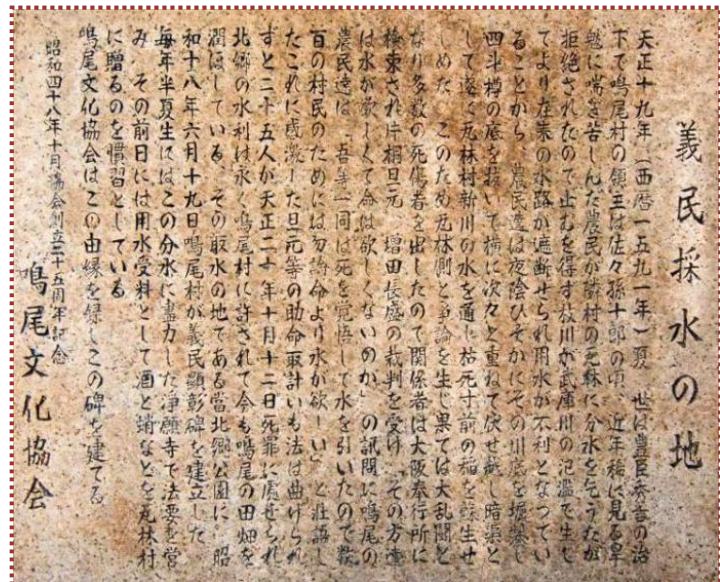 義民採水の地
天正十九年（西暦一五九一年）夏　世は豊臣秀吉の治
下で鳴尾村の領主は佐々孫十郎の頃、近年稀に見る旱
魃に喘ぎ苦しんだ農民が隣村の瓦林に分水を乞うたが
拒絶されたので止むを得ず枝川が武庫川の氾濫で生じ
てより在来の水路が遮断せられ用水が不利となってい
ることから、農民達は夜陰ひそかにその川底を堀鑿し
四斗樽の底を抜いて横に次々と重ねて伏せ蔵し暗渠と
して遂に瓦林村新川の水を通し枯死寸前の稲を蘇生せ
しめた、このため瓦林側と争論を生じ果ては大乱闘と
なり多数の死傷者を出したので関係者は大阪奉行所に
検束され片桐旦元、増田長盛の裁判を受け「その方達
は水が欲しくて命は欲しくないのか」の訊問に鳴尾の
農民達は「吾等一同は死を覚悟して水を引いたので数
百の村民のためには勿論命より水が欲しい」と壮語し
たこれに感激した旦元等の助命取計いも法は曲げられ
ずと二十五人が天正二十年十月十二日死罪に処せられ
北郷の水利は永く鳴尾村に許されて今も鳴尾の田畑を
潤ほしている、その取水の地である当北郷公園に　昭
和十八年六月十九日鳴尾村が義民顕彰碑を建立した
毎年半夏生にはこの分水に盡力した浄願寺で法要を営
み、その前日には用水受料として酒と蛸などを瓦林村
に贈るのを慣習としている
鳴尾文化協会はこの由縁を録しこの碑を建てる
昭和四十八年十月協会創立二十五周年記念
鳴尾文化協会